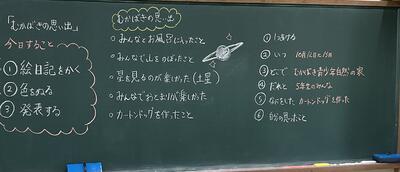 「むかばきの思い出」
今日すること
① 絵日記をかく
② 色をぬる
③ 発表する
むかばきの思い出
○みんなとお風呂に入ったこと
○みんなで山をのぼったこと
○星を見るのが楽しかった（土星）
○みんなでおとまりが楽しかった
○カートンドッグを作ったこと
①
② いつ 10月
③ どこで むかばき青少年自然の家
④ だれと 5年生のみんな
⑤ なにをした カートンドッグを作った
⑥ 自分の思ったこと